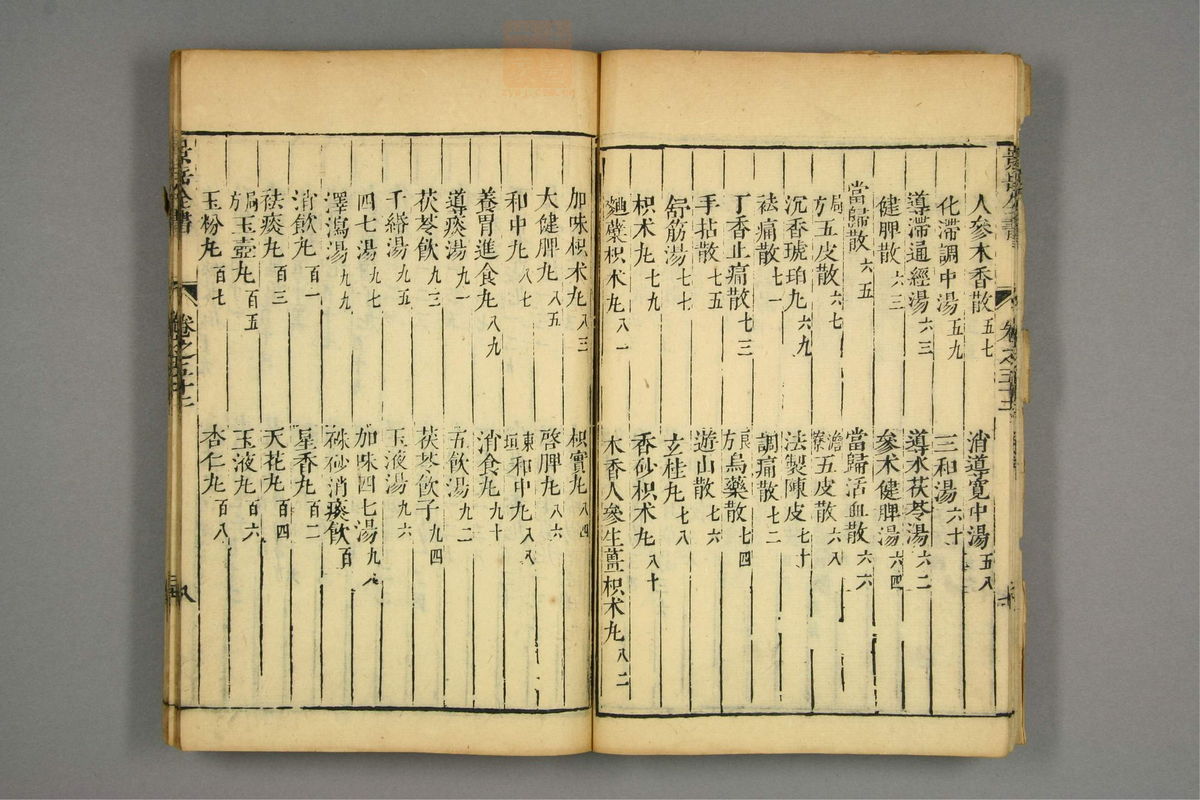 人參木香散五七
消導寬中湯五八
化滯調中湯五九
三和湯六十
導滯通經湯六三
導水茯苓湯六二
健脾散六三
參术健脾湯六四
當歸散六五
當歸活血散六六
局方五皮散六七
澹寮五皮散六八
沉香琥珀丸六九
法製陳皮七十
袪痛散七一
調痛散七二
丁香止痛散七三
良方烏藥散七四
手拈散七五
遊山散七六
舒筋湯七七
玄桂丸七八
枳术丸七九
香砂枳术丸八十
麯蘗枳术丸八一
木香人參生薑枳术丸八二
加味枳术丸八三
枳實丸八四
大健脾丸八五
啓脾丸八六
和中丸八七
東垣和中丸八八
養胃進食丸八九
消食丸九十
導痰湯九一
五飲湯九二
茯苓飲九三
茯苓飲子九四
千緡湯九五
玉液湯九六
四七湯九七
加味四七湯九八
澤瀉湯九九
硃砂消痰飲百
消飲丸百一
星香丸百二
袪痰丸百三
天花丸百四
局方玉壺丸百五
玉液丸百六
玉粉丸百七
杏仁丸百八
景岳全書
卷之五十二
八